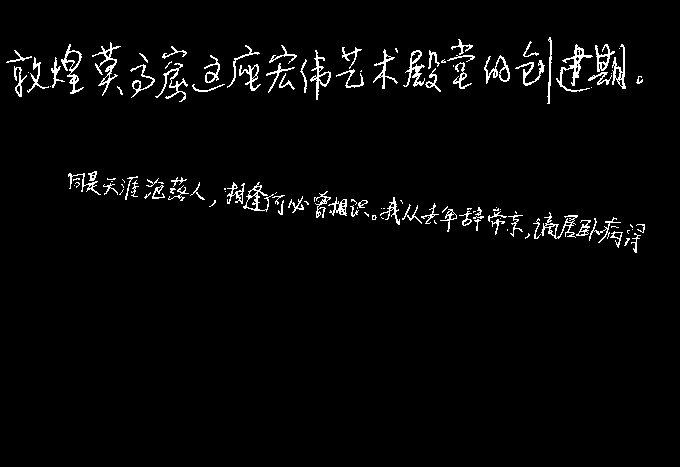 敦煌莫高窟这座宏伟艺术殿堂的创建期。
同是天涯沦落人，相逢何必曾相识。我从去年辞帝京，谪居卧病浔